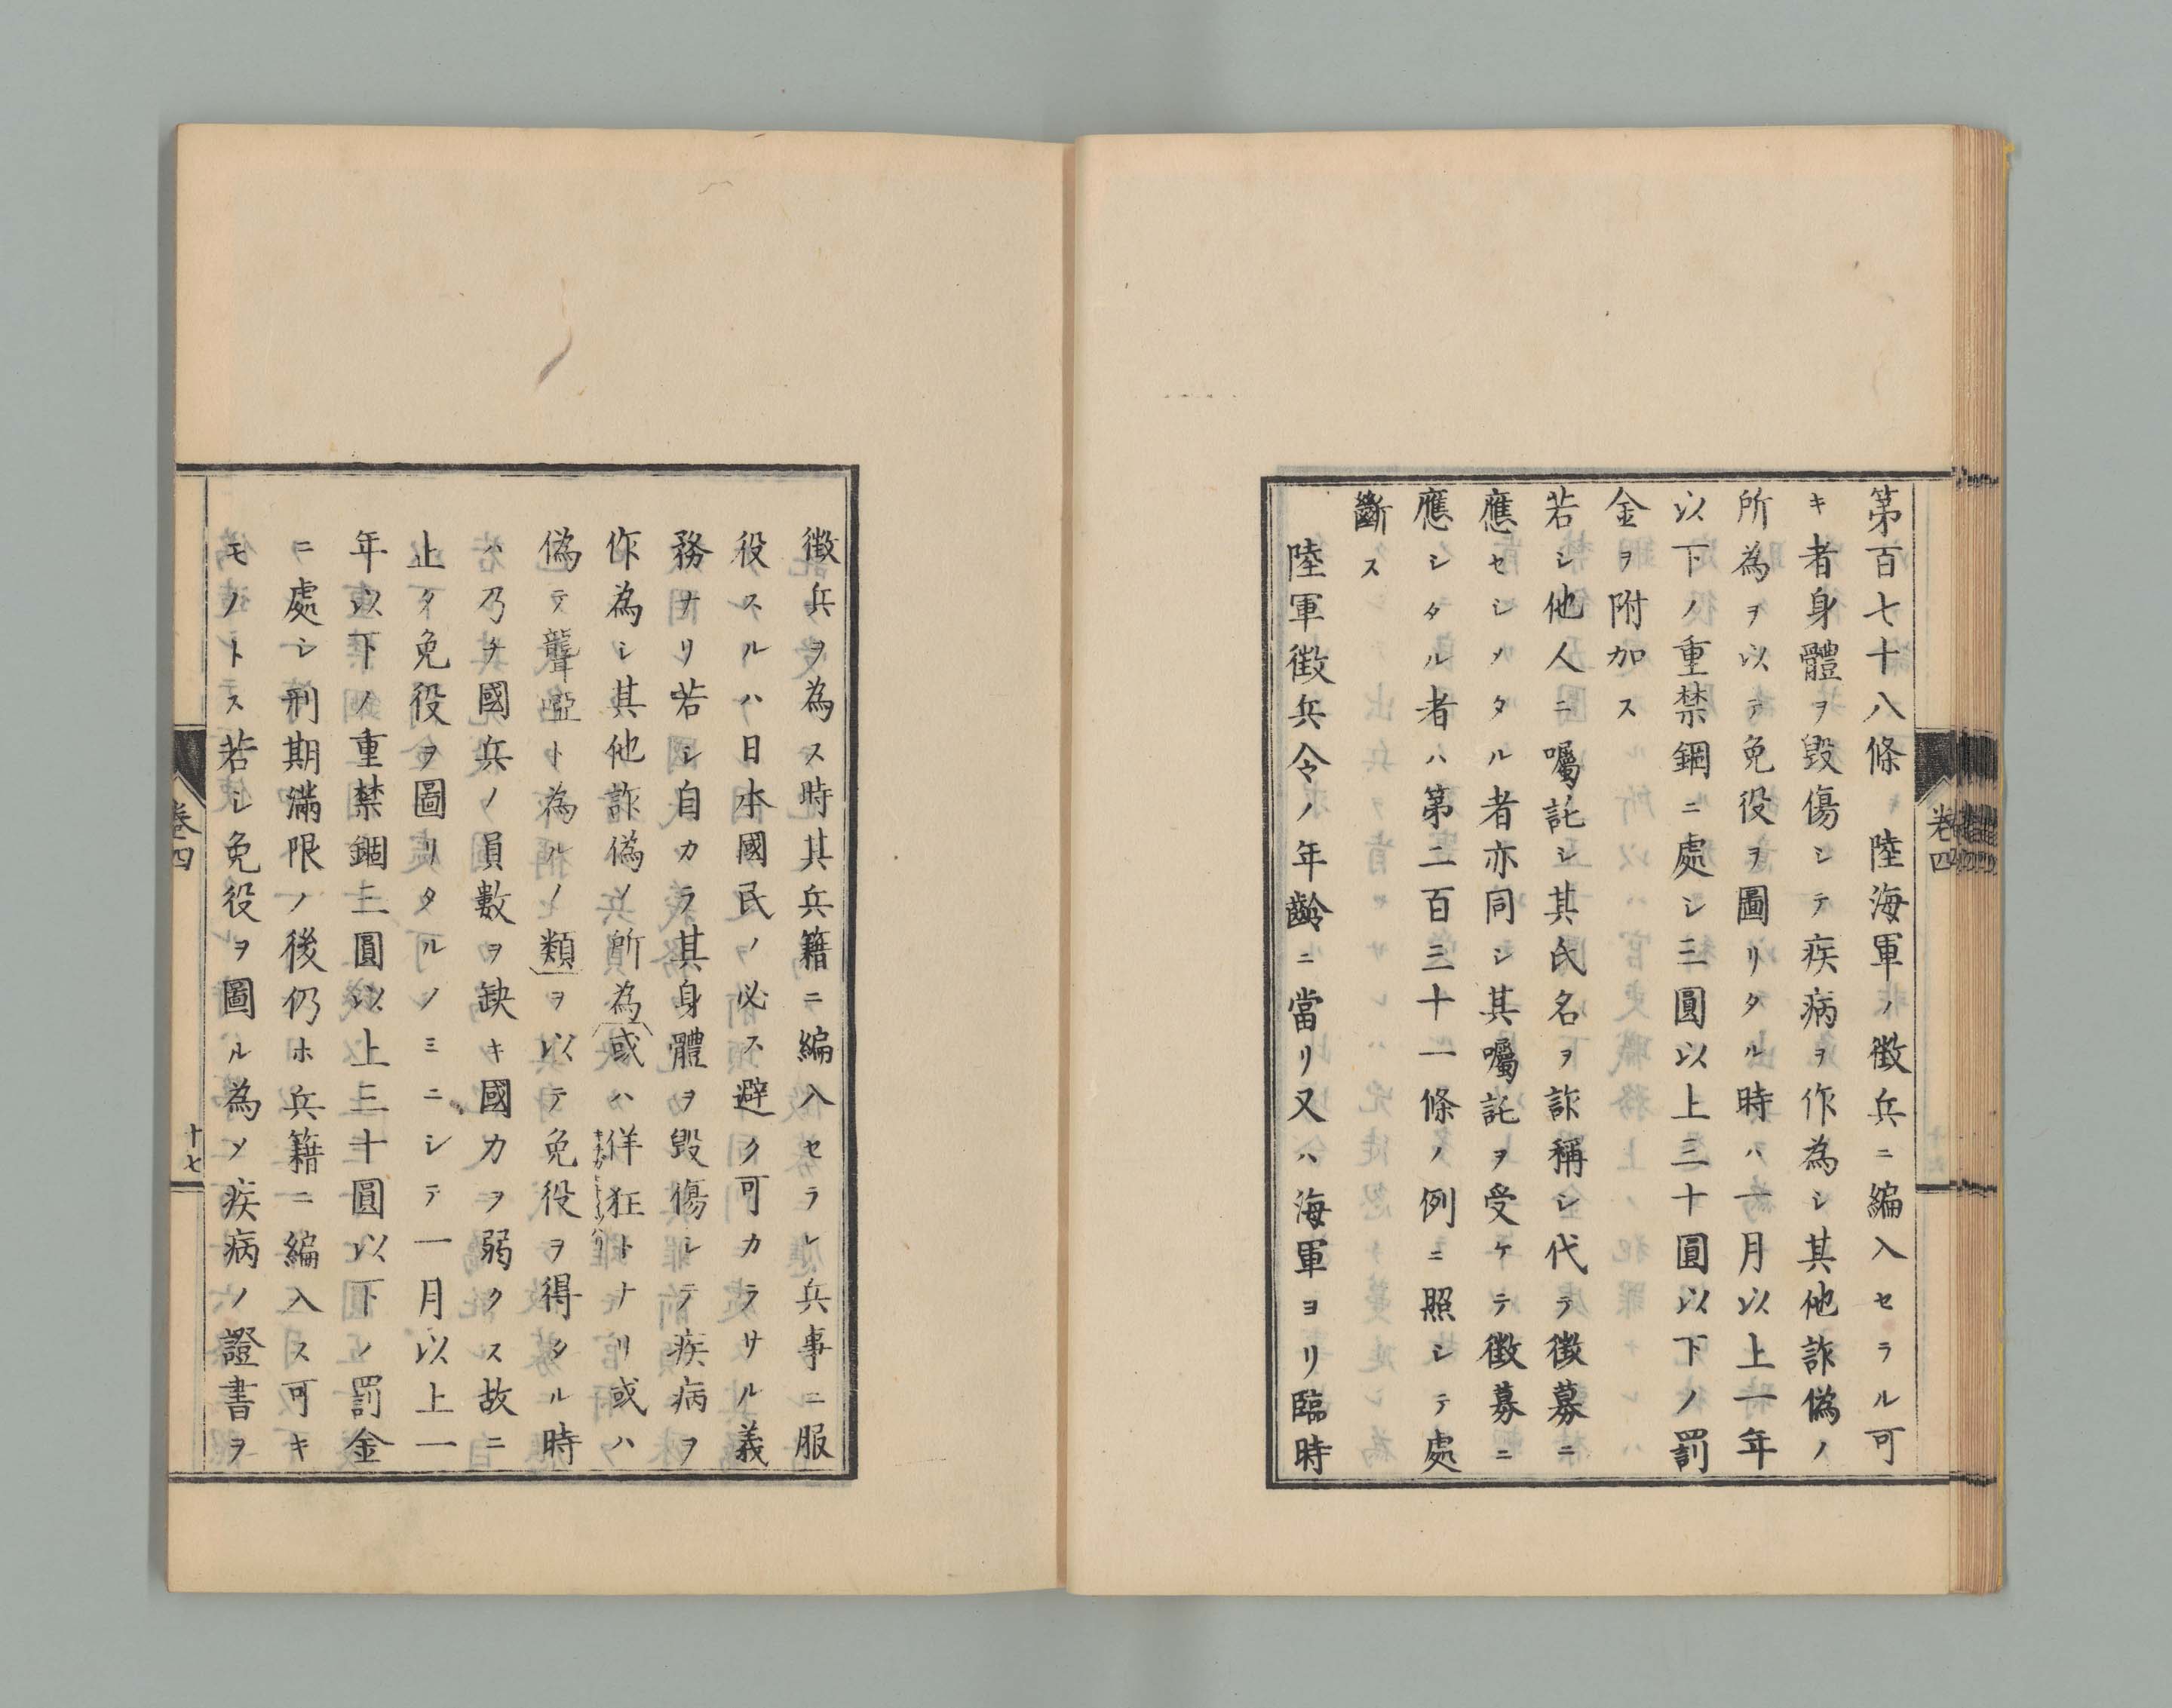 第百七十八條　陸海軍ノ徴兵ニ編入セラル可
キ者身體ヲ毀傷シテ疾病ヲ作為シ其他詐偽ノ
所為ヲ以テ免役ヲ圖リタル時ハ一月以上一年
以下ノ重禁錮ニ處シ三圓以上三十圓以下ノ罰
金ヲ附加ス
若シ他人ニ囑託シ其氏名ヲ詐稱シ代テ徴募ニ
應セシメタル者亦同シ其囑託ヲ受ケテ徴募ニ
應シタル者ハ第二百三十一條ノ例ニ照シテ處
斷ス
陸軍徴兵令ノ年齡ニ當リ又ハ海軍ヨリ臨時
卷四
徴兵ヲ為ス時其兵籍ニ編入セラレ兵事ニ服
役スルハ日本國民ノ必ス避ク可カラサル義
務ナリ若シ自カラ其身體ヲ毀傷シテ疾病ヲ
作為シ其他詐偽ノ所為（或ハ佯狂トナリ或ハ
偽テ聾啞ト為ルノ類）ヲ以テ免役ヲ得タル時
ハ乃チ國兵ノ員數ヲ缺キ國力ヲ弱クス故ニ
止タ免役ヲ圖リタルノミニシテ一月以上一
年以下ノ重禁錮三圓以上三十圓以下ノ罰金
ニ處シ刑期滿限ノ後仍ホ兵籍ニ編入ス可キ
モノトス若シ免役ヲ圖ル為メ疾病ノ證書ヲ
卷四
十七